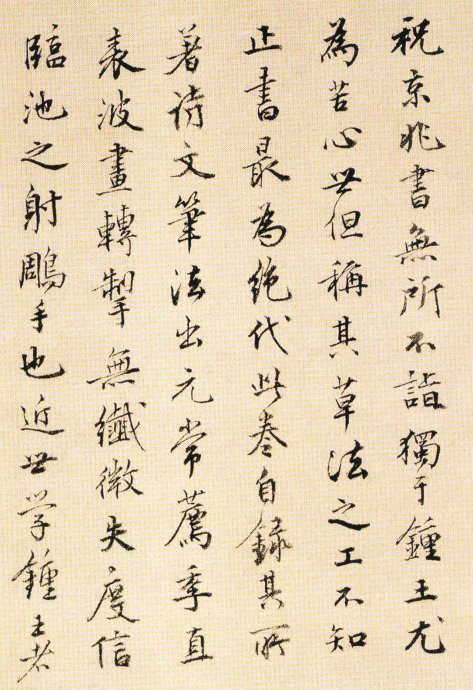 祝京兆書無所不詣獨于鍾王尤
為苦心世但稱其草法之工不知
正書最為絶代此卷自錄其所
著詩文筆法出元常薦季直
表波畫轉掣無纖微失度信
臨池之射鵰手也近世学鍾王者